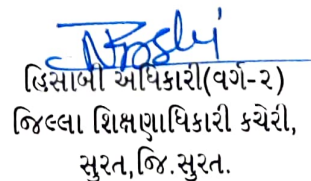 હિસાબી અધિકારી(વર્ગ-૨)
જિલ્લા શિક્ષણાધિકારી કચેરી,
સુરત,જિ.સુરત.